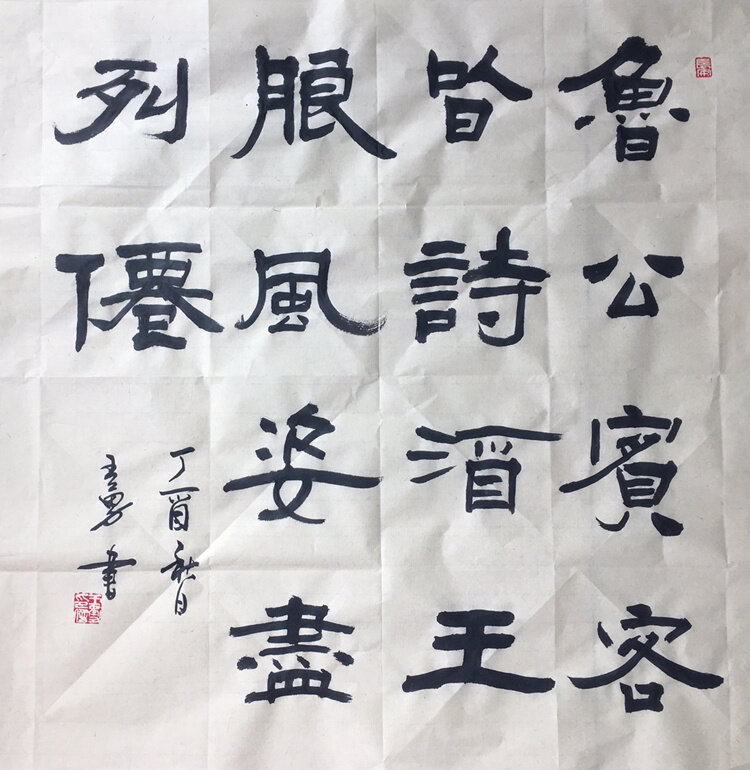 魯公賓客
皆詩酒王
朖風姿盡
列僊
丁酉秋日
王勇書